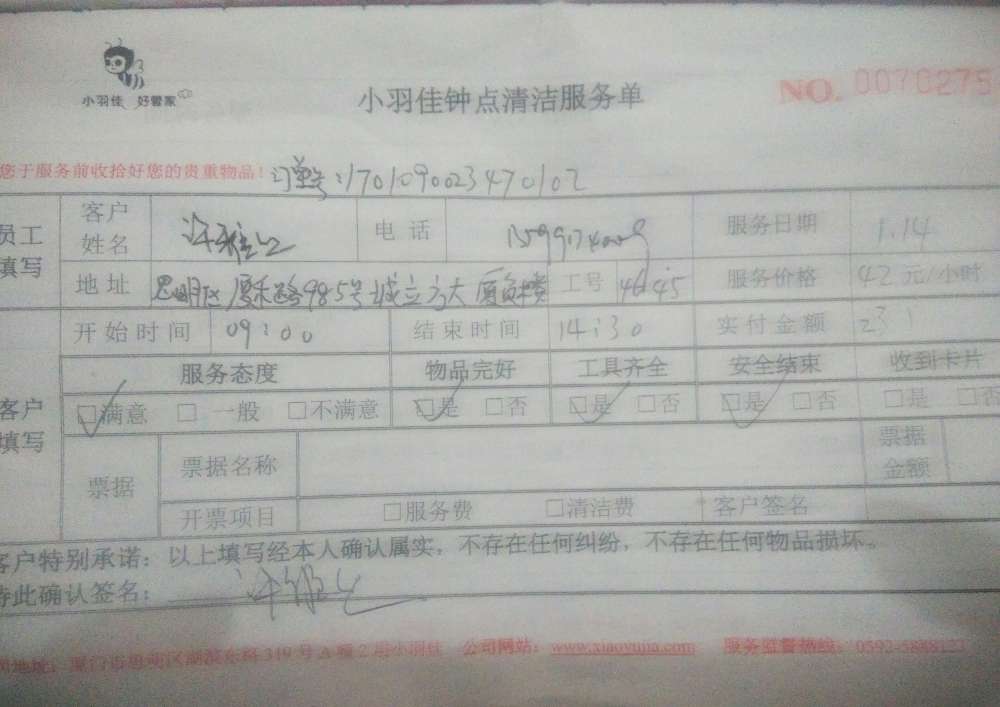 小羽佳 好管家
小羽佳钟点清洁服务单
NO. 0070275
您于服务前收拾好您的贵重物品！ 订单号：1701090023470102
员工填写 客户姓名 电话 服务日期 1.14
地址 思明区厦禾路985号 工号 4645 服务价格 42 元/小时
开始时间 09:00 结束时间 14:30 实付金额 231
客户填写 服务态度 物品完好 工具齐全 安全结束 收到卡片
□满意 □一般 □不满意 □是 □否 □是 □否 □是 □否 □是 □否
票据 票据名称 票据金额
开票项目 □服务费 □清洁费 客户签名
客户特别承诺：以上填写经本人确认属实，不存在任何纠纷，不存在任何物品损坏。
特此确认签名：
地址：厦门市思明区湖滨东路319号A幢2项小羽佳 公司网站：www.xiaoyujia.com 服务监督热线：0592-